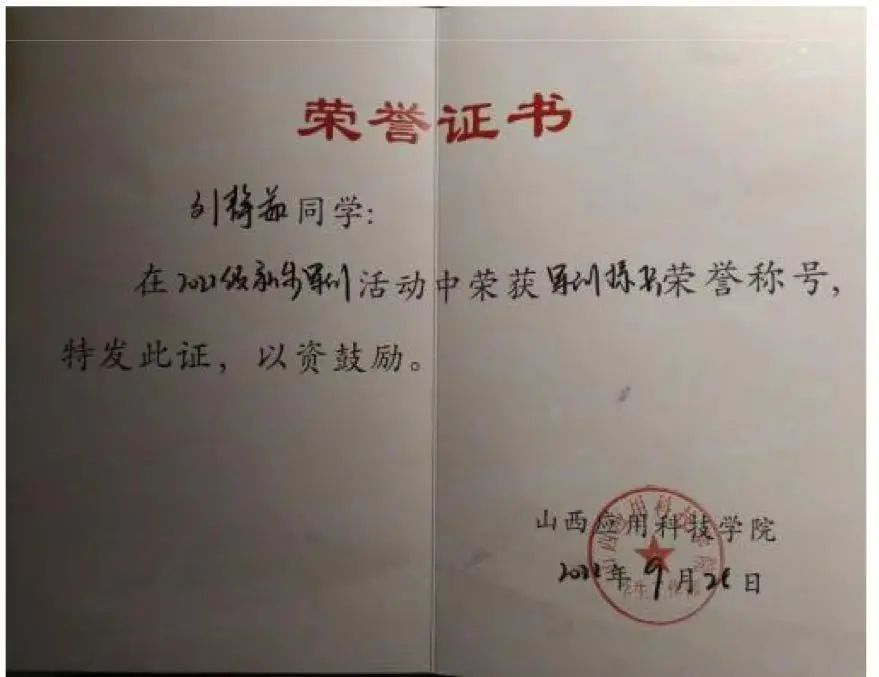 荣誉证书
刘静茹同学:
在2022级新生军训活动中荣获军训标兵荣誉称号,
特发此证，以资鼓励。
山西应用科技学院
2022年9月26日